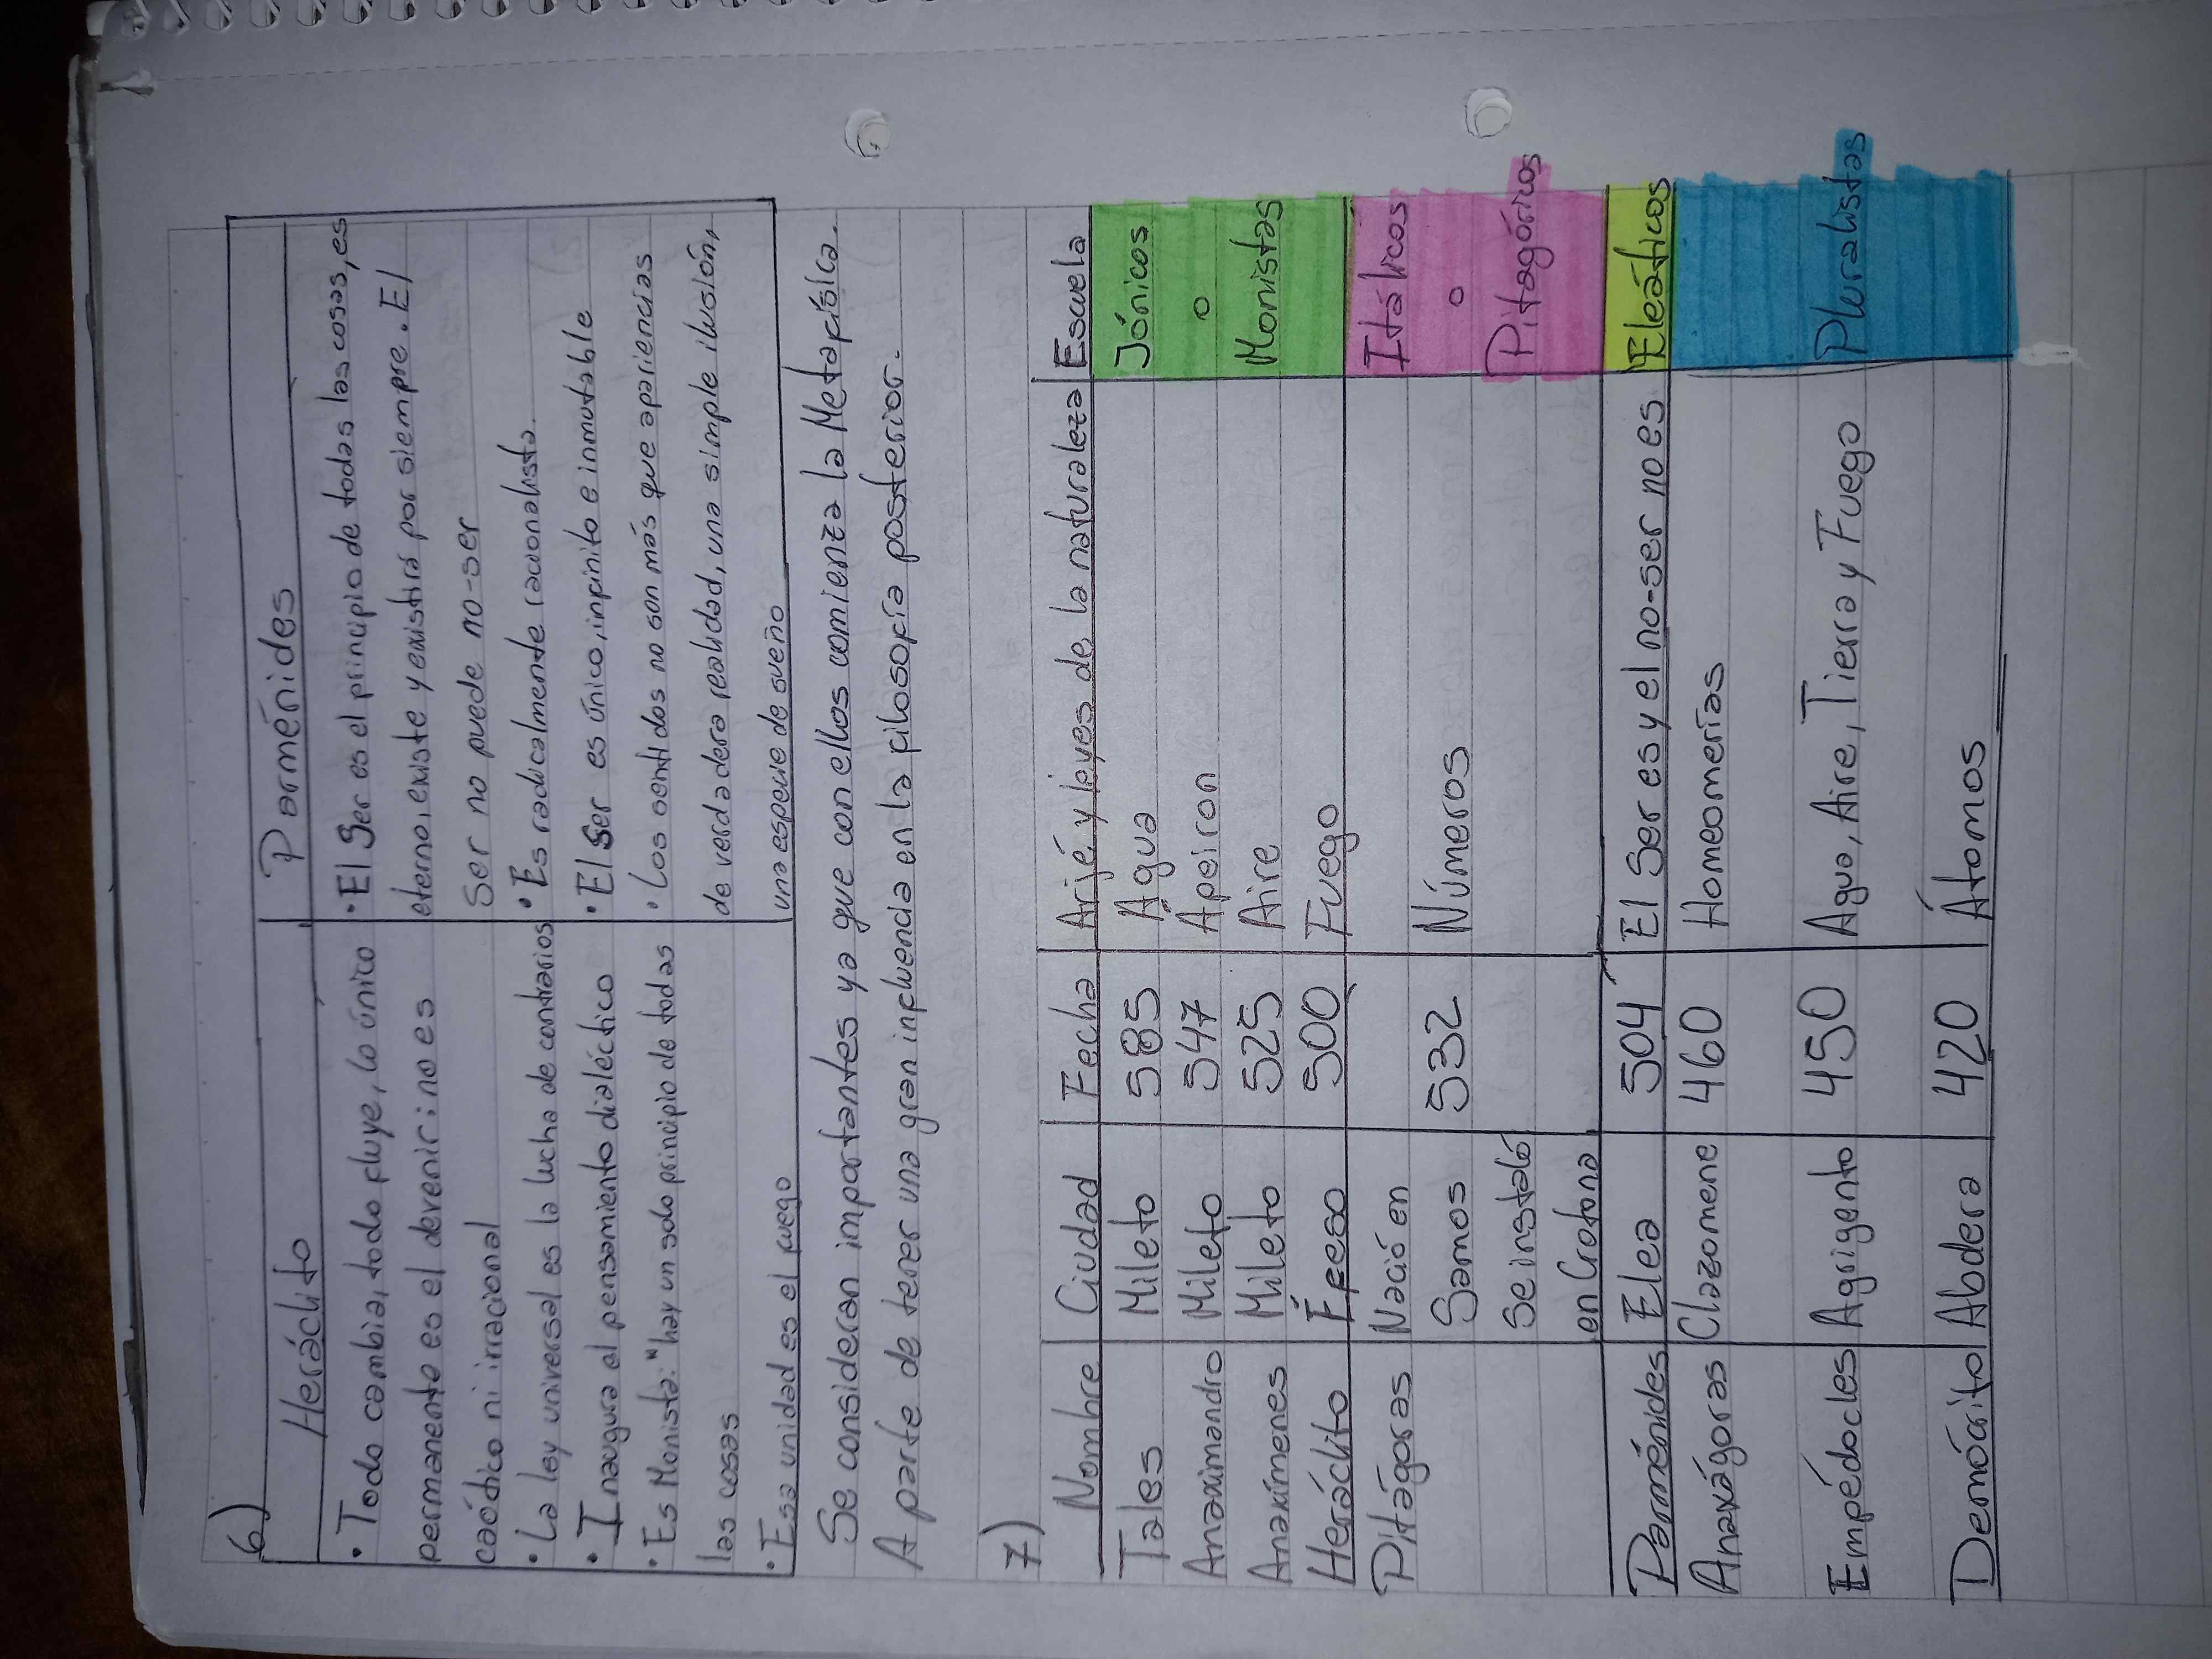 6)
Heráclito Parménides
• Todo cambia, todo fluye, lo único • El Ser es el principio de todas las cosas, es
permanente es el devenir: no es eterno, existe y existirá por siempre. El
caótico ni irracional Ser no puede no-ser
• La ley universal es la lucha de contrarios • Es radicalmente racionalista.
• Inaugura el pensamiento dialéctico • El Ser es único, infinito e inmutable
• Es Monista: "hay un solo principio de todas • Los sentidos no son más que apariencias
las cosas de verdadera realidad, una simple ilusión,
• Esa unidad es el fuego una especie de sueño
Se consideran importantes ya que con ellos comienza la Metafísica.
A parte de tener una gran influencia en la filosofía posterior.
7)
Nombre Ciudad Fecha Arjé y leyes de la naturaleza Escuela
Tales Mileto 585 Agua Jónicos
Anaximandro Mileto 547 Apeiron o
Anaxímenes Mileto 525 Aire Monistas
Heráclito Éfeso 500 Fuego
Pitágoras Nació en Itálicos
Samos 532 Números o
Se instaló Pitagóricos
en Crotona
Parménides Elea 504 El Ser es y el no-ser no es Eleáticos
Anaxágoras Clazomene 460 Homeomerías
Empédocles Agrigento 450 Agua, Aire, Tierra y Fuego Pluralistas
Demócrito Abdera 420 Átomos